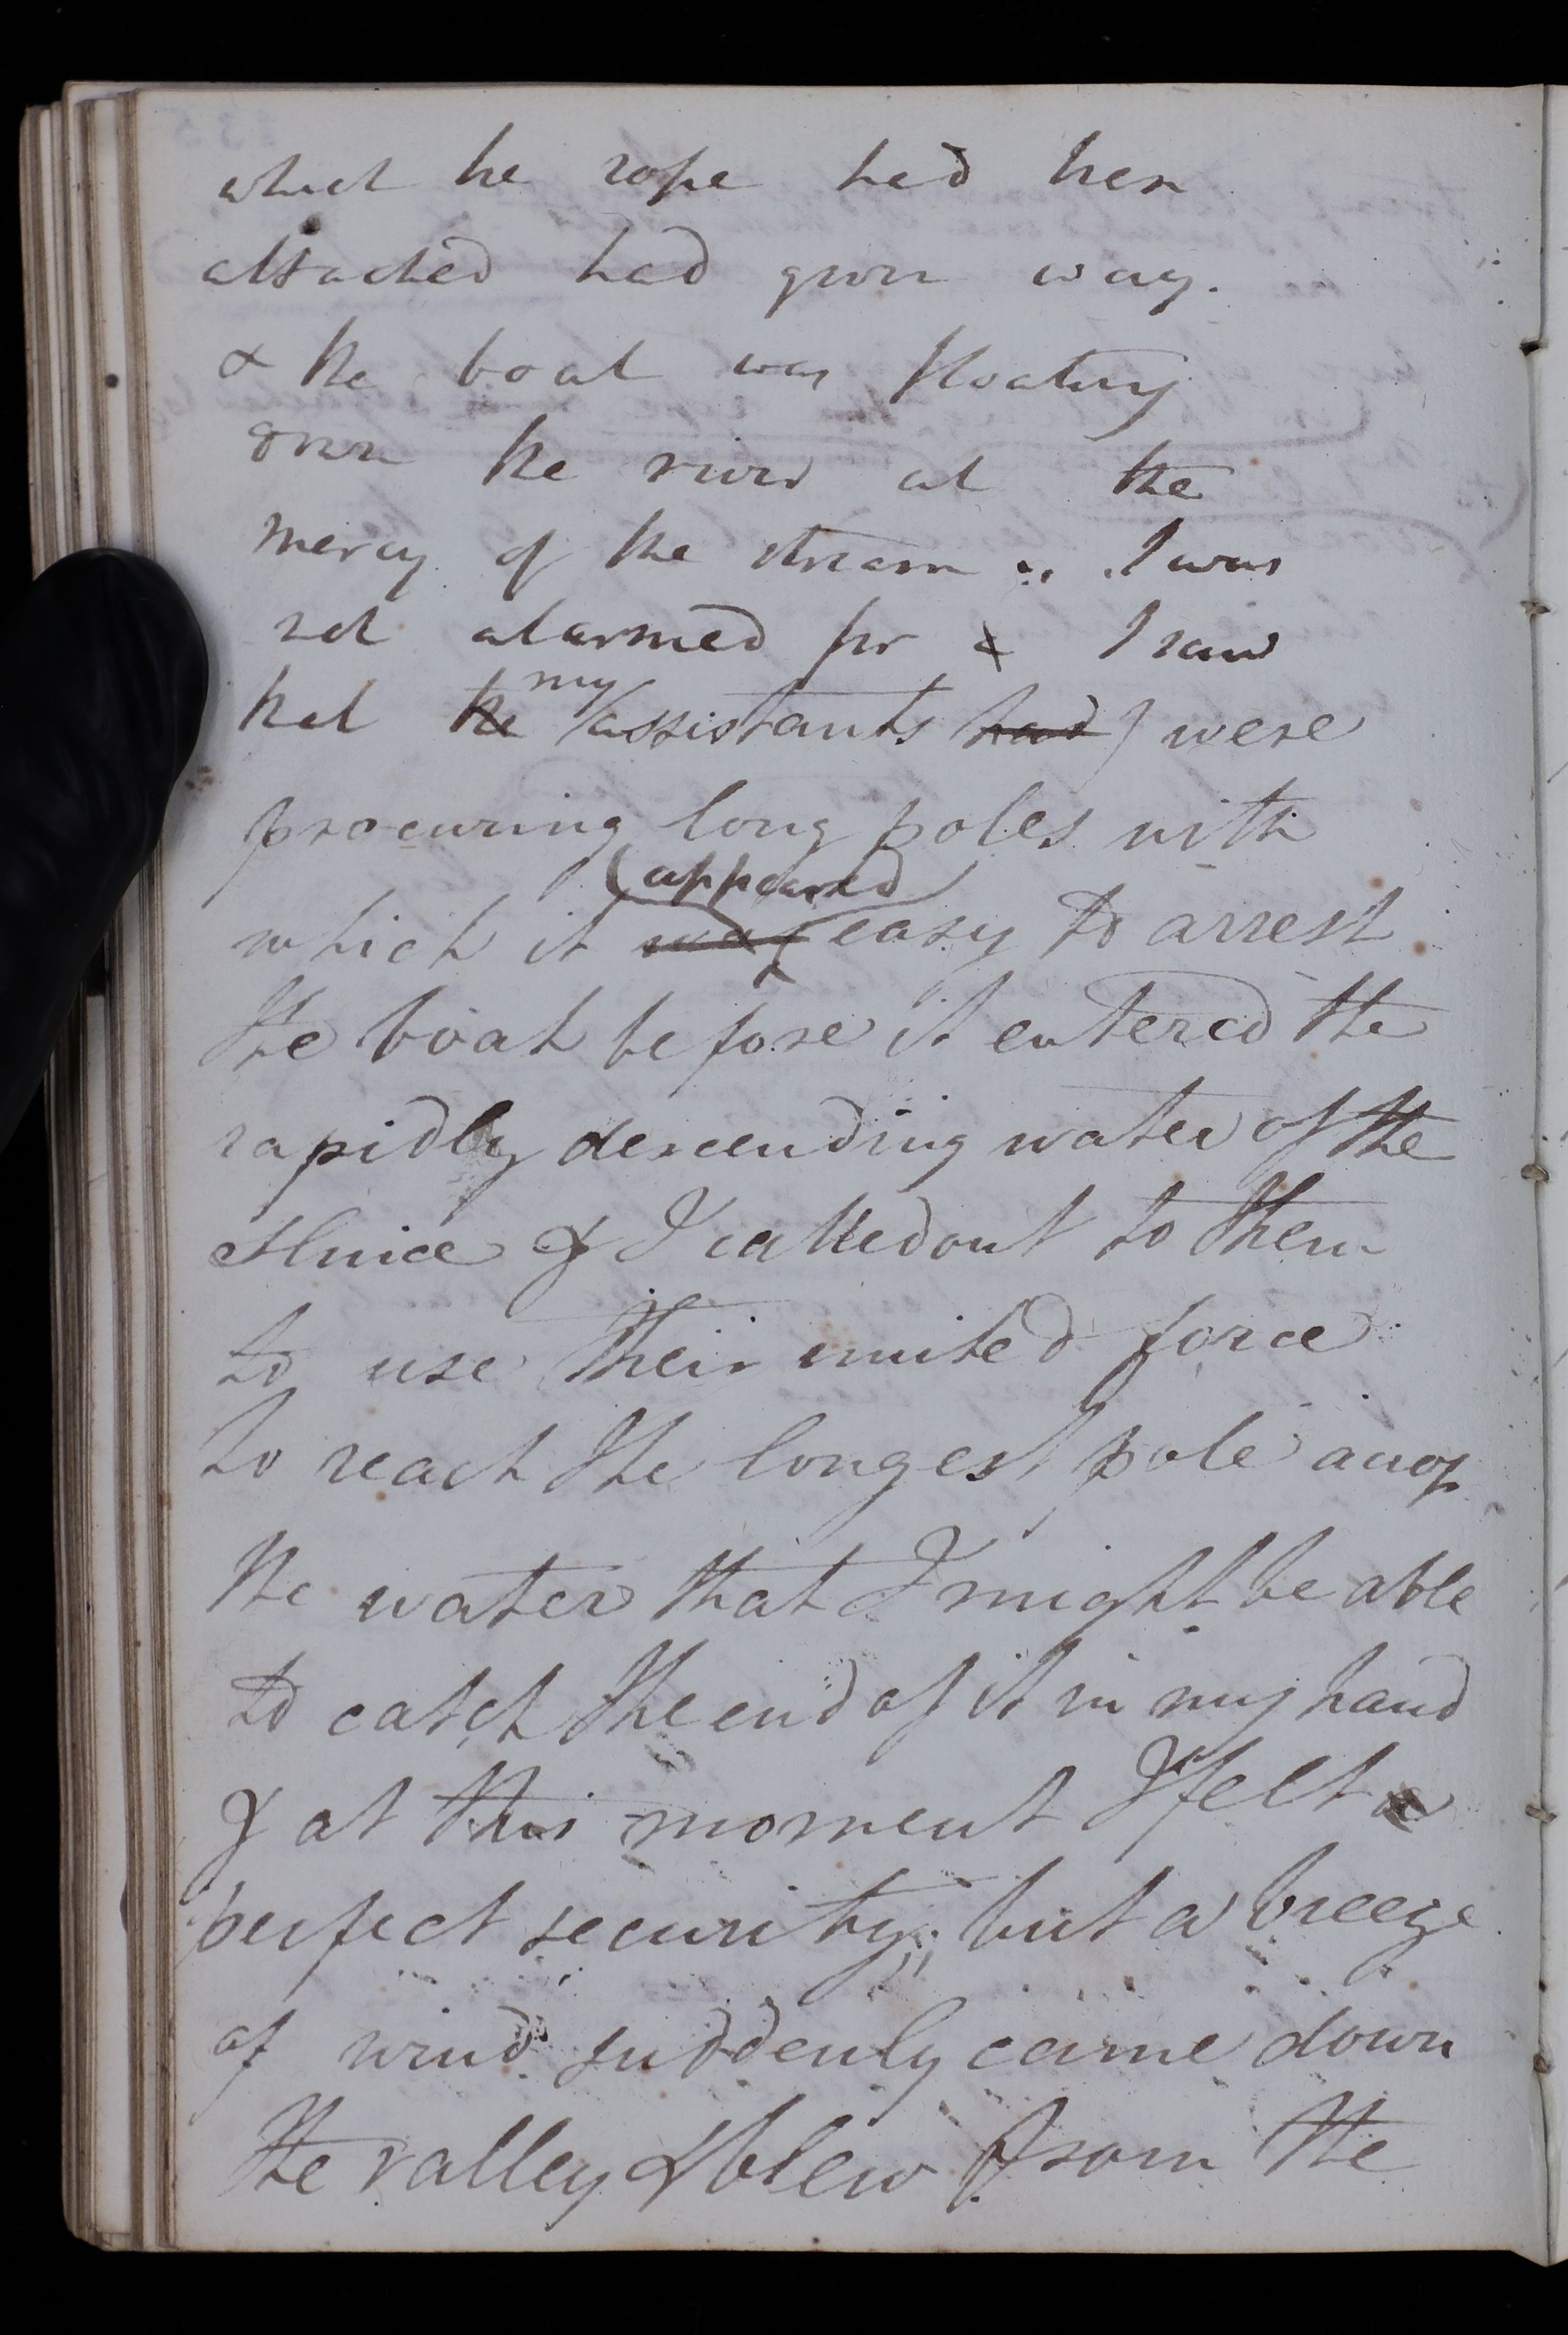 which the rope had been
attached had given way.
& the boat was floating
down the river at the
mercy of the stream. I was
not alarmed for & I saw
that the my assistants had were
procuring long poles with
which it was appeared easy to arrest
the boat before it entered the
rapidly descending water of the
sluice & I called out to them
to use their united force
to reach the longest pole across
the water that I might be able
to catch the end of it in my hand
& at this moment I felt a
perfect security; but a breeze
of wind suddenly came down
the valley & blew from the